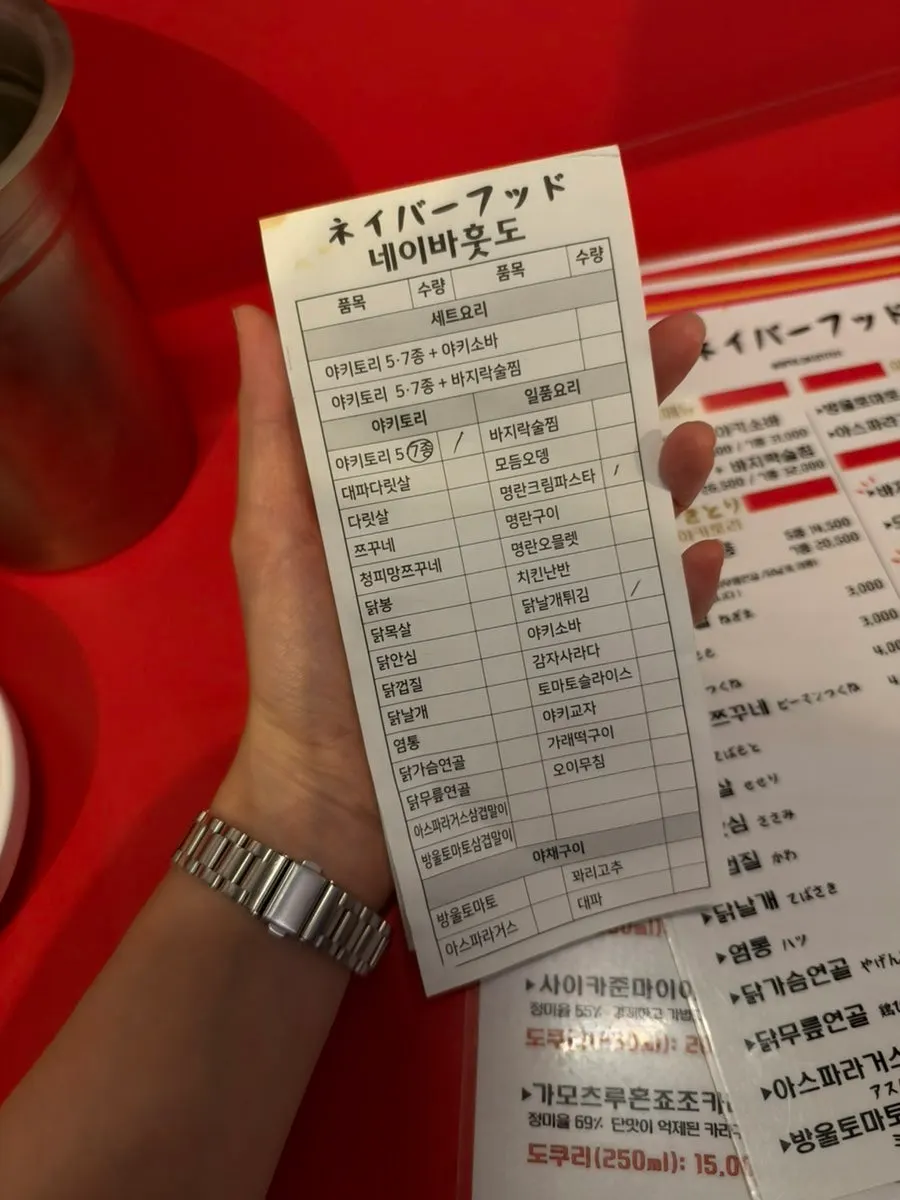 ネイバーフッド
네이바훗도
품목 수량 품목 수량
세트요리
야키토리 5·7종 + 야키소바
야키토리 5·7종 + 바지락술찜
야키토리 일품요리
야키토리 5 7종 / 바지락술찜
대파다릿살 모듬오뎅
다릿살 명란크림파스타 /
쯔꾸네 명란구이
청피망쯔꾸네 명란오믈렛
닭봉 치킨난반
닭목살 닭날개튀김 /
닭안심 야키소바
닭껍질 감자사라다
닭날개 토마토슬라이스
염통 야키교자
닭가슴연골 가래떡구이
닭무릎연골 오이무침
아스파라거스삼겹말이
방울토마토삼겹말이
야채구이
방울토마토 꽈리고추
아스파라거스 대파
ネイバーフッド
야키소바
▸방울토마토
▸아스파라
+ 바지락술찜
5종 14,500
7종 20,500
3,000
ねぎま
3,000
4,000
つくね
쯔꾸네 ピーマンつくね
せせり
심 ささみ
껍질 かわ
▸닭날개 てばさき
▸염통 ハツ
▸닭가슴연골 やげん
▸닭무릎연골
▸아스파라거스
アス
▸방울토마토
▸사이카준마이
정미율 55%
▸가모츠루혼죠조카
정미율 69% 단맛이 억제된 카라
도쿠리(250ml): 15.0